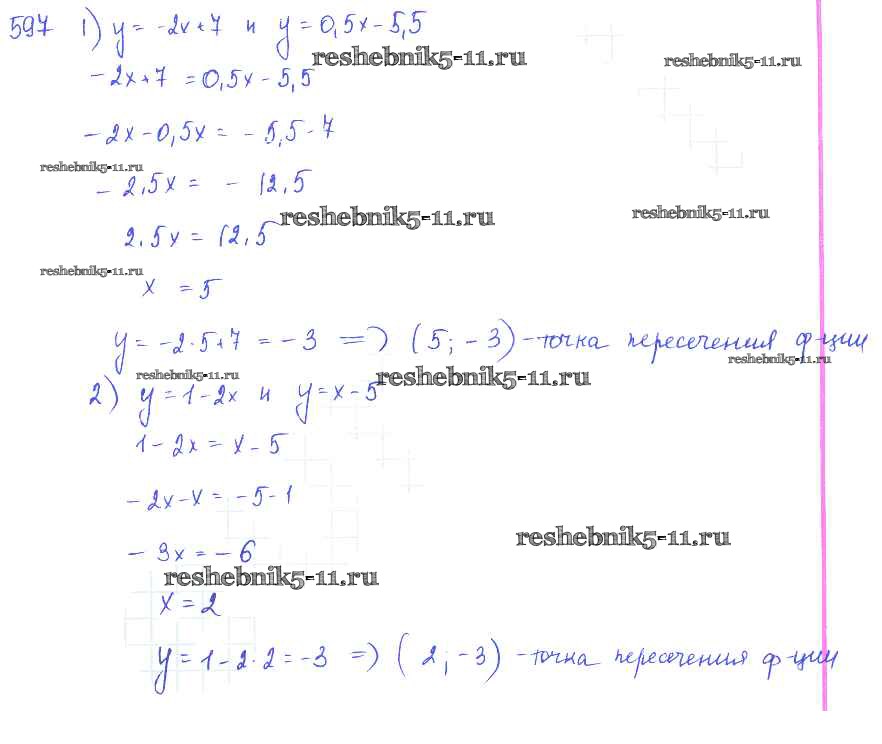 597 1) y = -2x+7 и y = 0,5x-5,5
reshebnik5-11.ru
reshebnik5-11.ru
-2x+7 = 0,5x-5,5
-2x-0,5x = -5,5-7
reshebnik5-11.ru
-2,5x = -12,5
reshebnik5-11.ru
reshebnik5-11.ru
2,5x = 12,5
reshebnik5-11.ru
x = 5
y = -2·5+7 = -3 => (5; -3) - точка пересечения ф-ции
reshebnik5-11.ru
reshebnik5-11.ru
reshebnik5-11.ru
2) y = 1-2x и y = x-5
1-2x = x-5
-2x-x = -5-1
reshebnik5-11.ru
-3x = -6
reshebnik5-11.ru
x = 2
y = 1-2·2 = -3 => (2; -3) - точка пересечения ф-ции